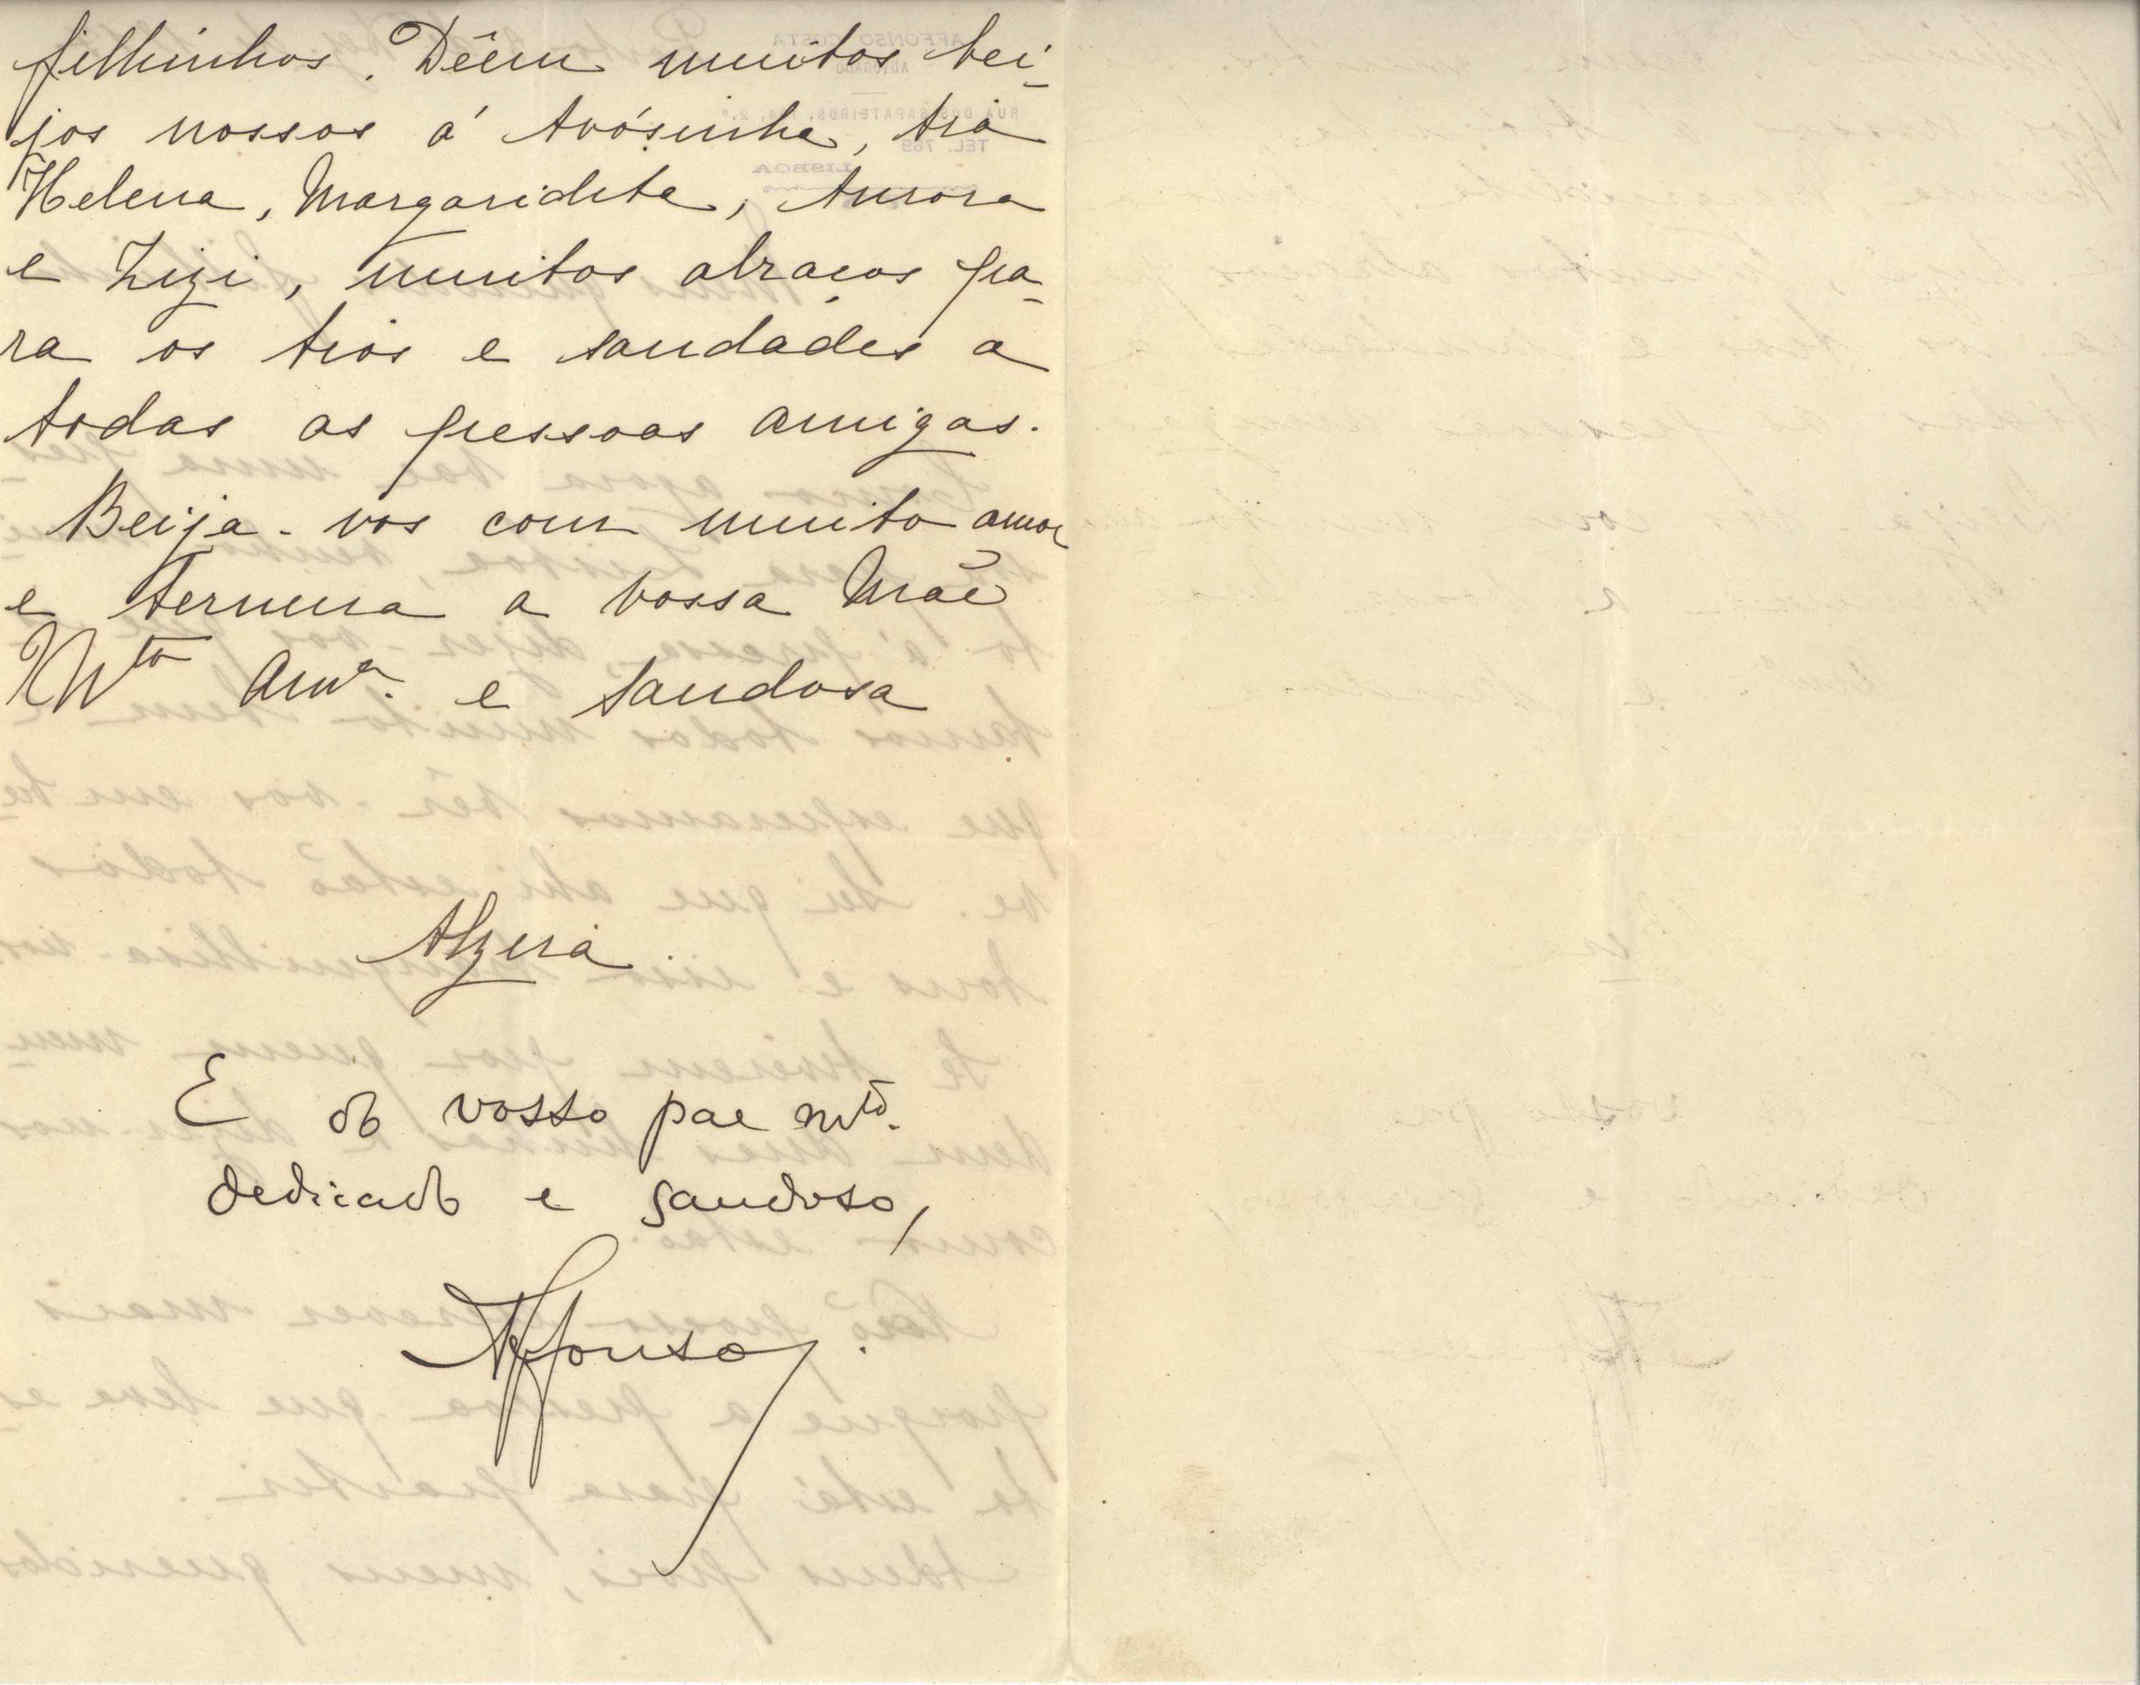 filhinhos. Dêem muitos bei-
jos nossos á Avósinha, tia
Helena, Margaridita, Aurora
e Zizi, muitos abraços pa-
ra os tios e saudades a
todas as pessoas amigas.
Beija-vos com muito amor
e ternura a vossa Mãe
Mto Ama. e saudosa
Alzira
E do vosso pae mto.
dedicado e saudoso,
Affonso